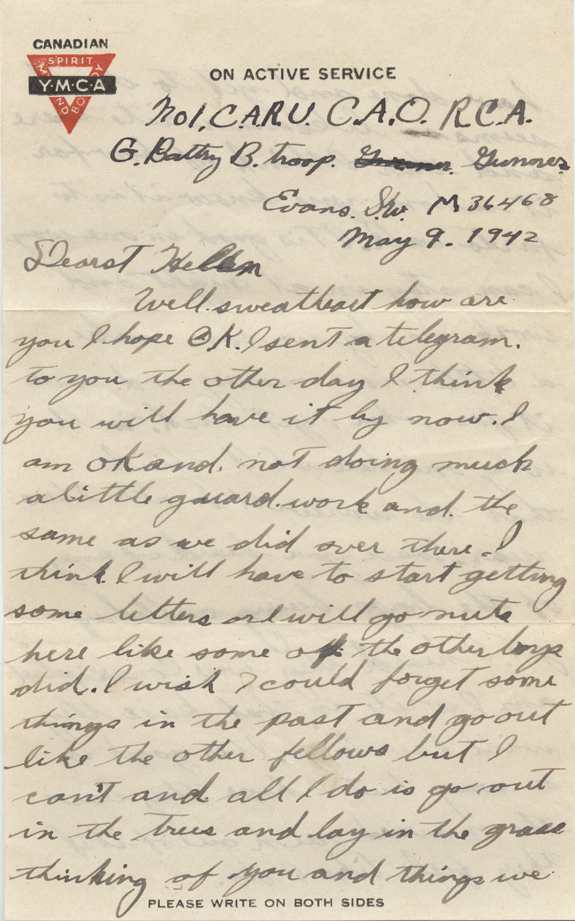 CANADIAN
SPIRIT
Y·M·C·A
MIND BODY
ON ACTIVE SERVICE
No1, C.A.R.U. C.A.O. R.C.A.
G. Battry B. troop. Gunner
Evans. S.W. M36468
May 9. 1942
Dearst Hellen
Well sweatheart how are
you I hope OK. I sent a telegram.
to you the other day I think
you will have it by now. I
am ok and. not doing much
a little guard. work and. the
same as we did over there. I
think I will have to start getting
some letters or I will go nuts
here like some of the other boys
did. I wish I could forget some
things in the past and go out
like the other fellows but I
can't and all I do is go out
in the trees and lay in the grass
thinking of you and things we
PLEASE WRITE ON BOTH SIDES